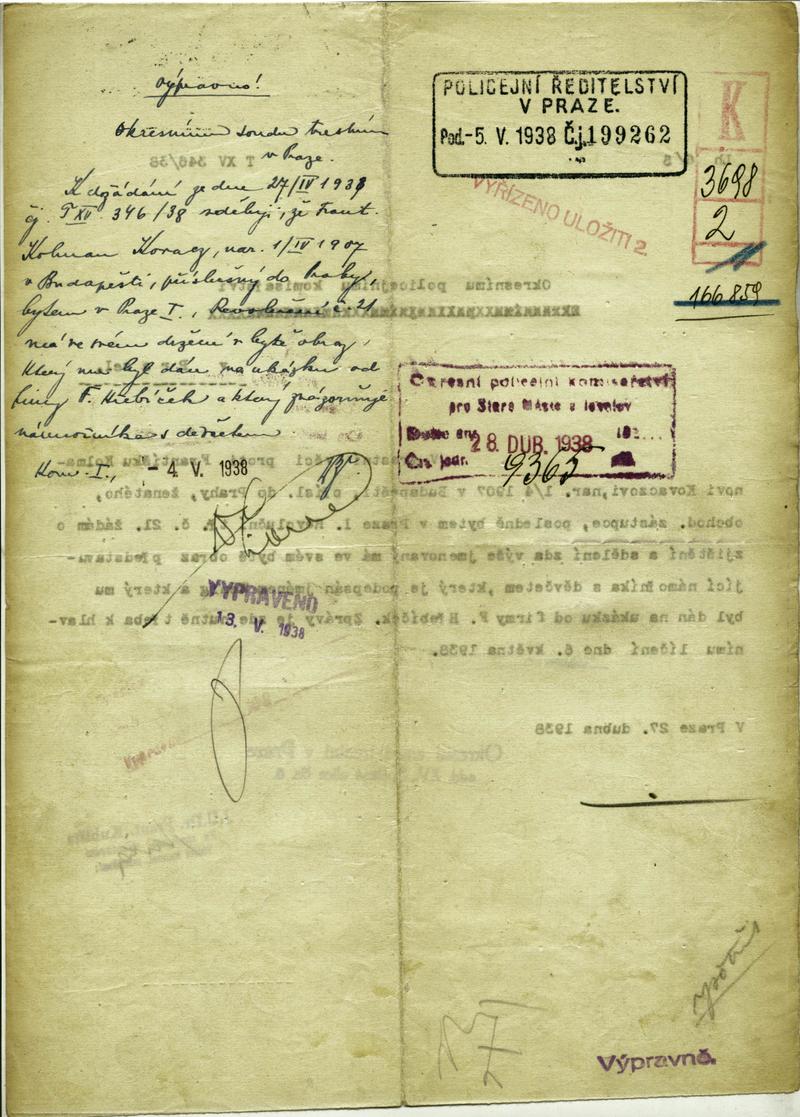 Výpravně!
Okresnímu soudu trestnímu
v Praze.
K dožádání ze dne 27/IV 1938
čj. T XV. 346/38 sděluji, že Frant.
Kolman Kovacz, nar. 1/IV 1907
v Budapešti, příslušný do Prahy,
bytem v Praze I., Revoluční č. 21
má ve svém držení v bytě obraz,
který mu byl dán na ukázku od
firmy F. Hřebíček a který znázorňuje
námořníka s děvčetem.
Kom. I.,
- 4. V. 1938
VYPRAVENO
13. V. 1938
POLICEJNÍ ŘEDITELSTVÍ
V PRAZE.
Pod. -5. V. 1938 Č.j. 199262
K
3698
2
166.859
VYŘÍZENO ULOŽITI 2.
T XV 346/38
Okresnímu policejnímu komisařství
Okresní policejní komisařství
pro Staré Město a Josefov
Došlo dne 28. DUB. 1938
Čís. jedn. 9365
věci proti Františku Kolma-
novi Kovaczovi, nar. 1/4 1907 v Budapešti, přísl. do Prahy, ženatého,
obchod. zástupce, posledně bytem v Praze I. Revoluční č. 21. žádám o
zjištění a sdělení zda výše jmenovaný má ve svém bytě obraz představu-
jící námořníka s děvčetem, který je podepsán a který mu
byl dán na ukázku od firmy F. Hřebíček. Zprávy je nutně třeba k hlav-
nímu líčení dne 6. května 1938.
V Praze 27. dubna 1938
Okresní soud trestní v Praze
Výpravně.